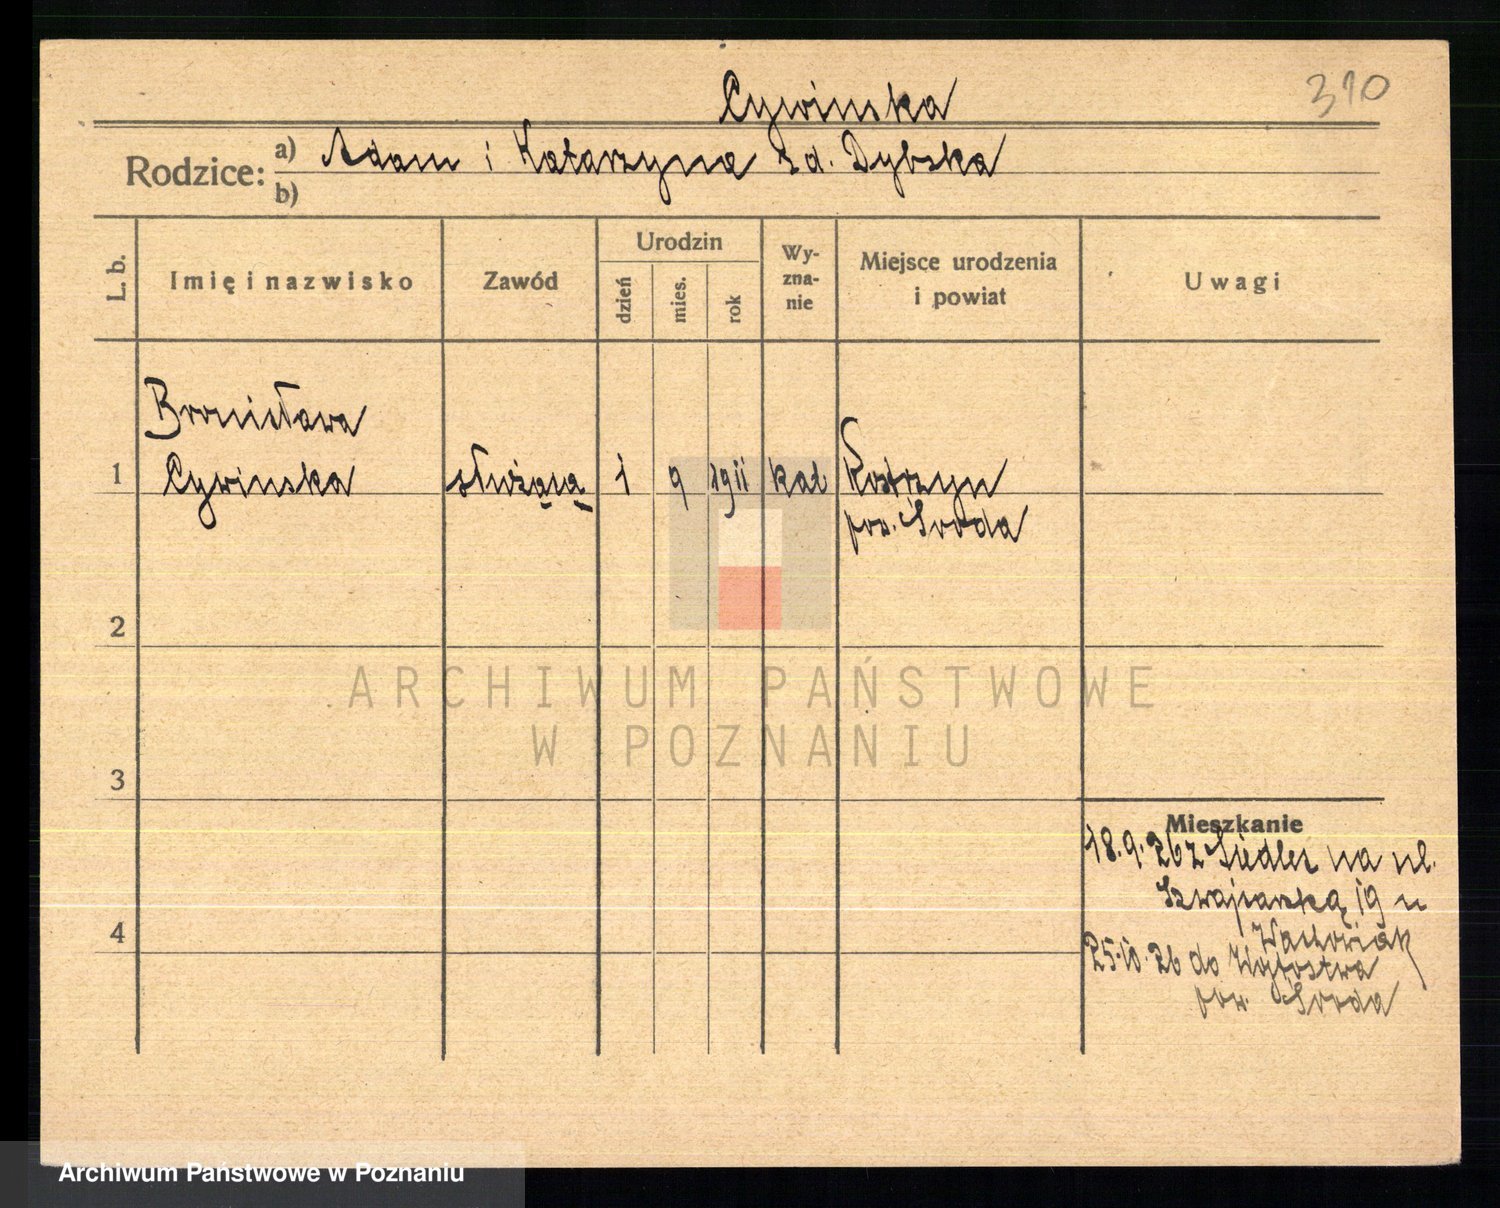 310
Cywinska
Rodzice: a) Adam i Katarzyna zd. Dybska
b)
L. b.
Imię i nazwisko
Zawód
Urodzin
dzień
mies.
rok
Wy-
zna-
nie
Miejsce urodzenia
i powiat
Uwagi
Bronisława
1 Cywinska służąca 1 9 1911 kat Kostrzyn
pow. Sroda
2
ARCHIWUM PAŃSTWOWE
W POZNANIU
3
Mieszkanie
18.9.26 z Siedlec na ul.
Szwajcarską 19 u
Wachowiak
4
25.10.26 do Wojtostwa
pow. Sroda
Archiwum Państwowe w Poznaniu